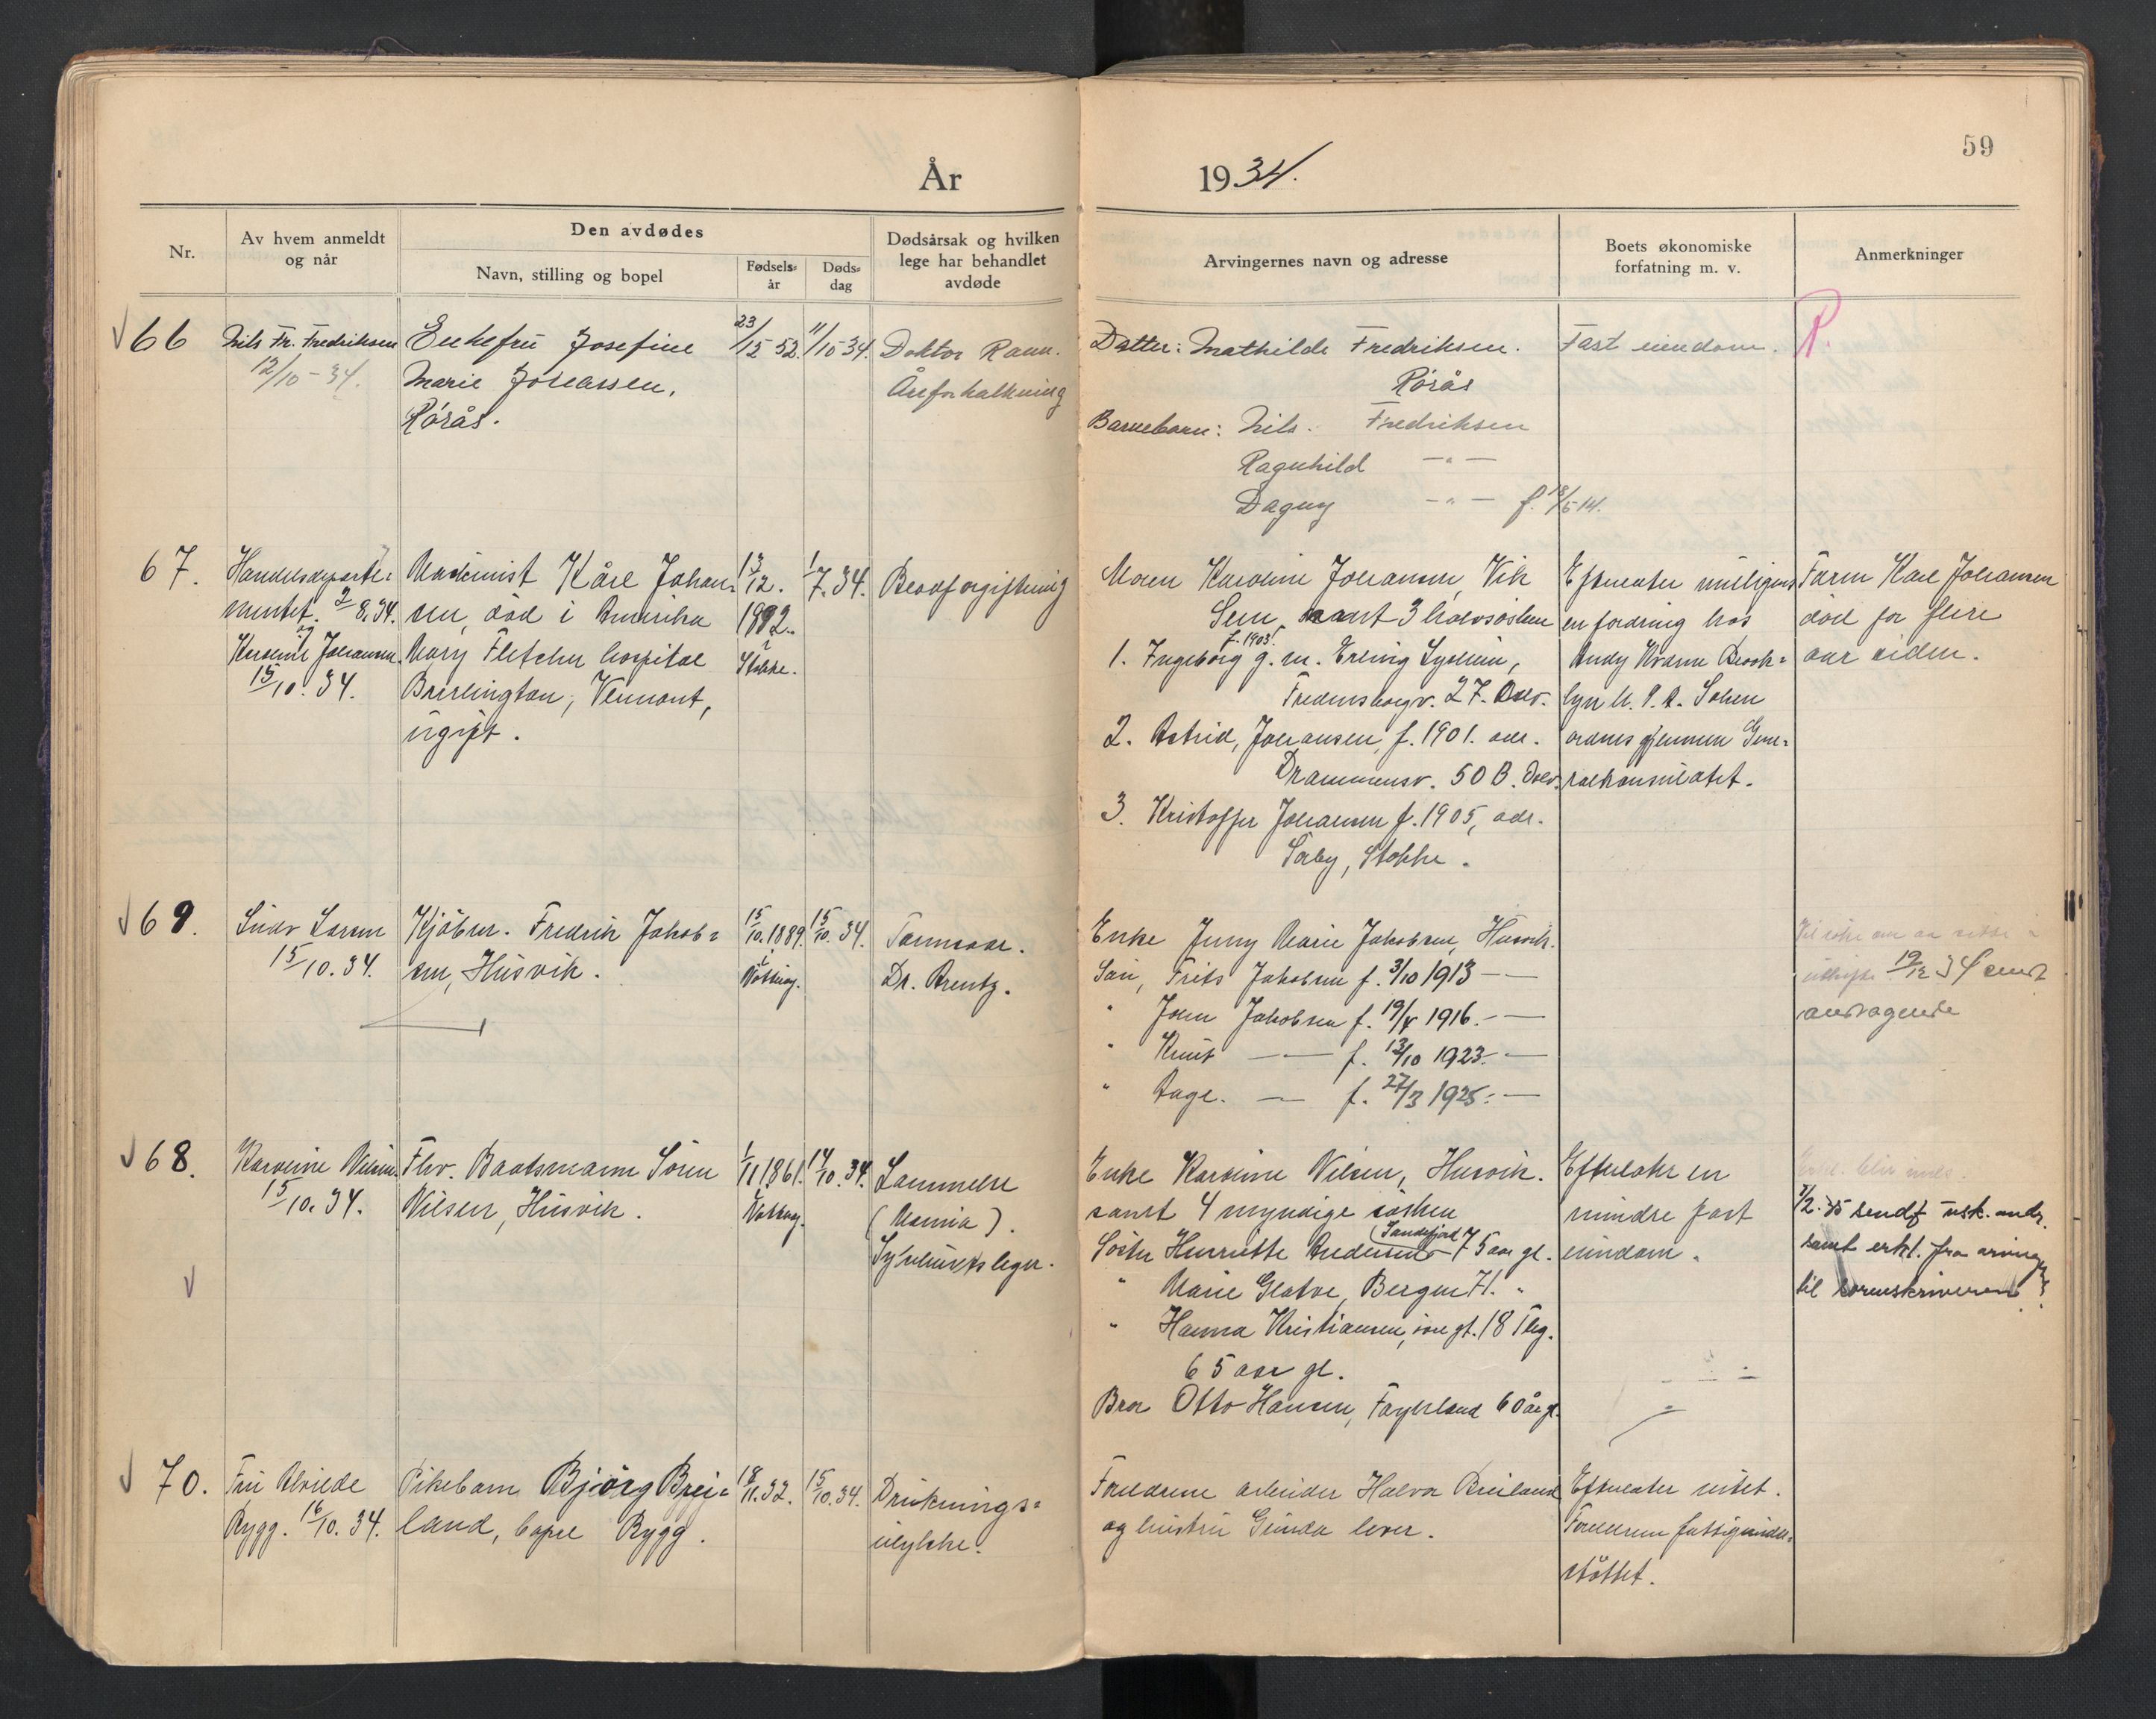 59
År 1934.
Nr.
Av hvem anmeldt og når
Den avdødes
Navn, stilling og bopel
Fødsels= år
Døds= dag
Dødsårsak og hvilken lege har behandlet avdøde
Arvingernes navn og adresse
Boets økonomiske forfatning m. v.
Anmerkninger
66
Nils Fr. Fredriksen
12/10 - 34.
Enkefru Josefine
Marie Johassen,
Rørås.
23/12 52.
11/10-34.
Doktor Ravn.
Åreforkalkning
Datter: Mathilde Fredriksen.
Rørås
Barnebarn: Nils. Fredriksen
Ragnhild —"—
Dagny —"— f. 18/5 14.
Fast eiendom.
R.
67.
Handelsdeparte=
mentet. 2/8.34.
og
Karoline Johansen
15/10. 34.
Maskinist Kåre Johan=
sen, død i Amerika
Mary Fletcher hospital
Burlington, Vermont,
ugift.
13/12.
1892.
i
Stokke.
1/7.34.
Blodforgiftning
Moren Karoline Johansen, Vik
Sem, samt 3 halvsøsken
f. 1903
1. Ingeborg g. m. Erling Lysheim,
Fredensborgv. 27. Oslo.
2. Astrid, Johansen, f. 1901. adr.
Drammensv. 50 B. Oslo.
3. Kristoffer Johansen f. 1905, adr.
Sørby, Stokke.
Efterlater muligens
en fordring hos
Andy Brook=
lyn U. S. A. Saken
ordnes gjennem Gene=
ralkonsulatet.
Faren Karl Johansen
død for flere
aar siden.
69.
Larsen
15/10. 34.
Kjøbm. Fredrik Jakob=
sen, Husvik.
15/10. 1889.
i
Nøtterøy.
15/10. 34.
Tarmsaar.
Dr. Arentz.
Enke Jenny Marie Jakobsen, Husvik.
Søn, Frits Jakobsen f. 3/10 1913 — —
" John Jakobsen f. 19/4 1916. — —
" Knut — — f. 13/10 1923. —
" Aage. — f. 27/3 1925. —
19/12 34 sendt
andragende
68.
Karoline Nilsen
15/10. 34.
Fhv. Baatsmann Søren
Nilsen, Husvik.
1/11 1861.
i
Nøtterøy.
14/10. 34.
Lammelse
(Uremia).
Sykehusets leger.
Enke Karoline Nilsen, Husvik.
samt 4 myndige søsken
Søster Henriette Andersen (Sandefjord 75 aar gl.
" Marie Glatve, Bergen 71. "
" Hanna Kristiansen, gt. 18 Tbg.
65 aar gl.
Bror Otto Hansen, Fagerland 60 år gl.
Efterlater en
mindre fast
eiendom.
1/2. 35 sendt usk. andr.
samt erkl. fra arving
til sorenskriveren
70.
Fru
Rygg. 16/10. 34.
Pikebarn Bjørg Brei=
land, bopel Rygg.
18/11. 32.
15/10. 34.
Druknings=
ulykke.
Foreldrene arbeider Halvor Breiland
og hustru Gunda lever.
Efterlater intet.
Foreldrene fattigunder=
støttet.